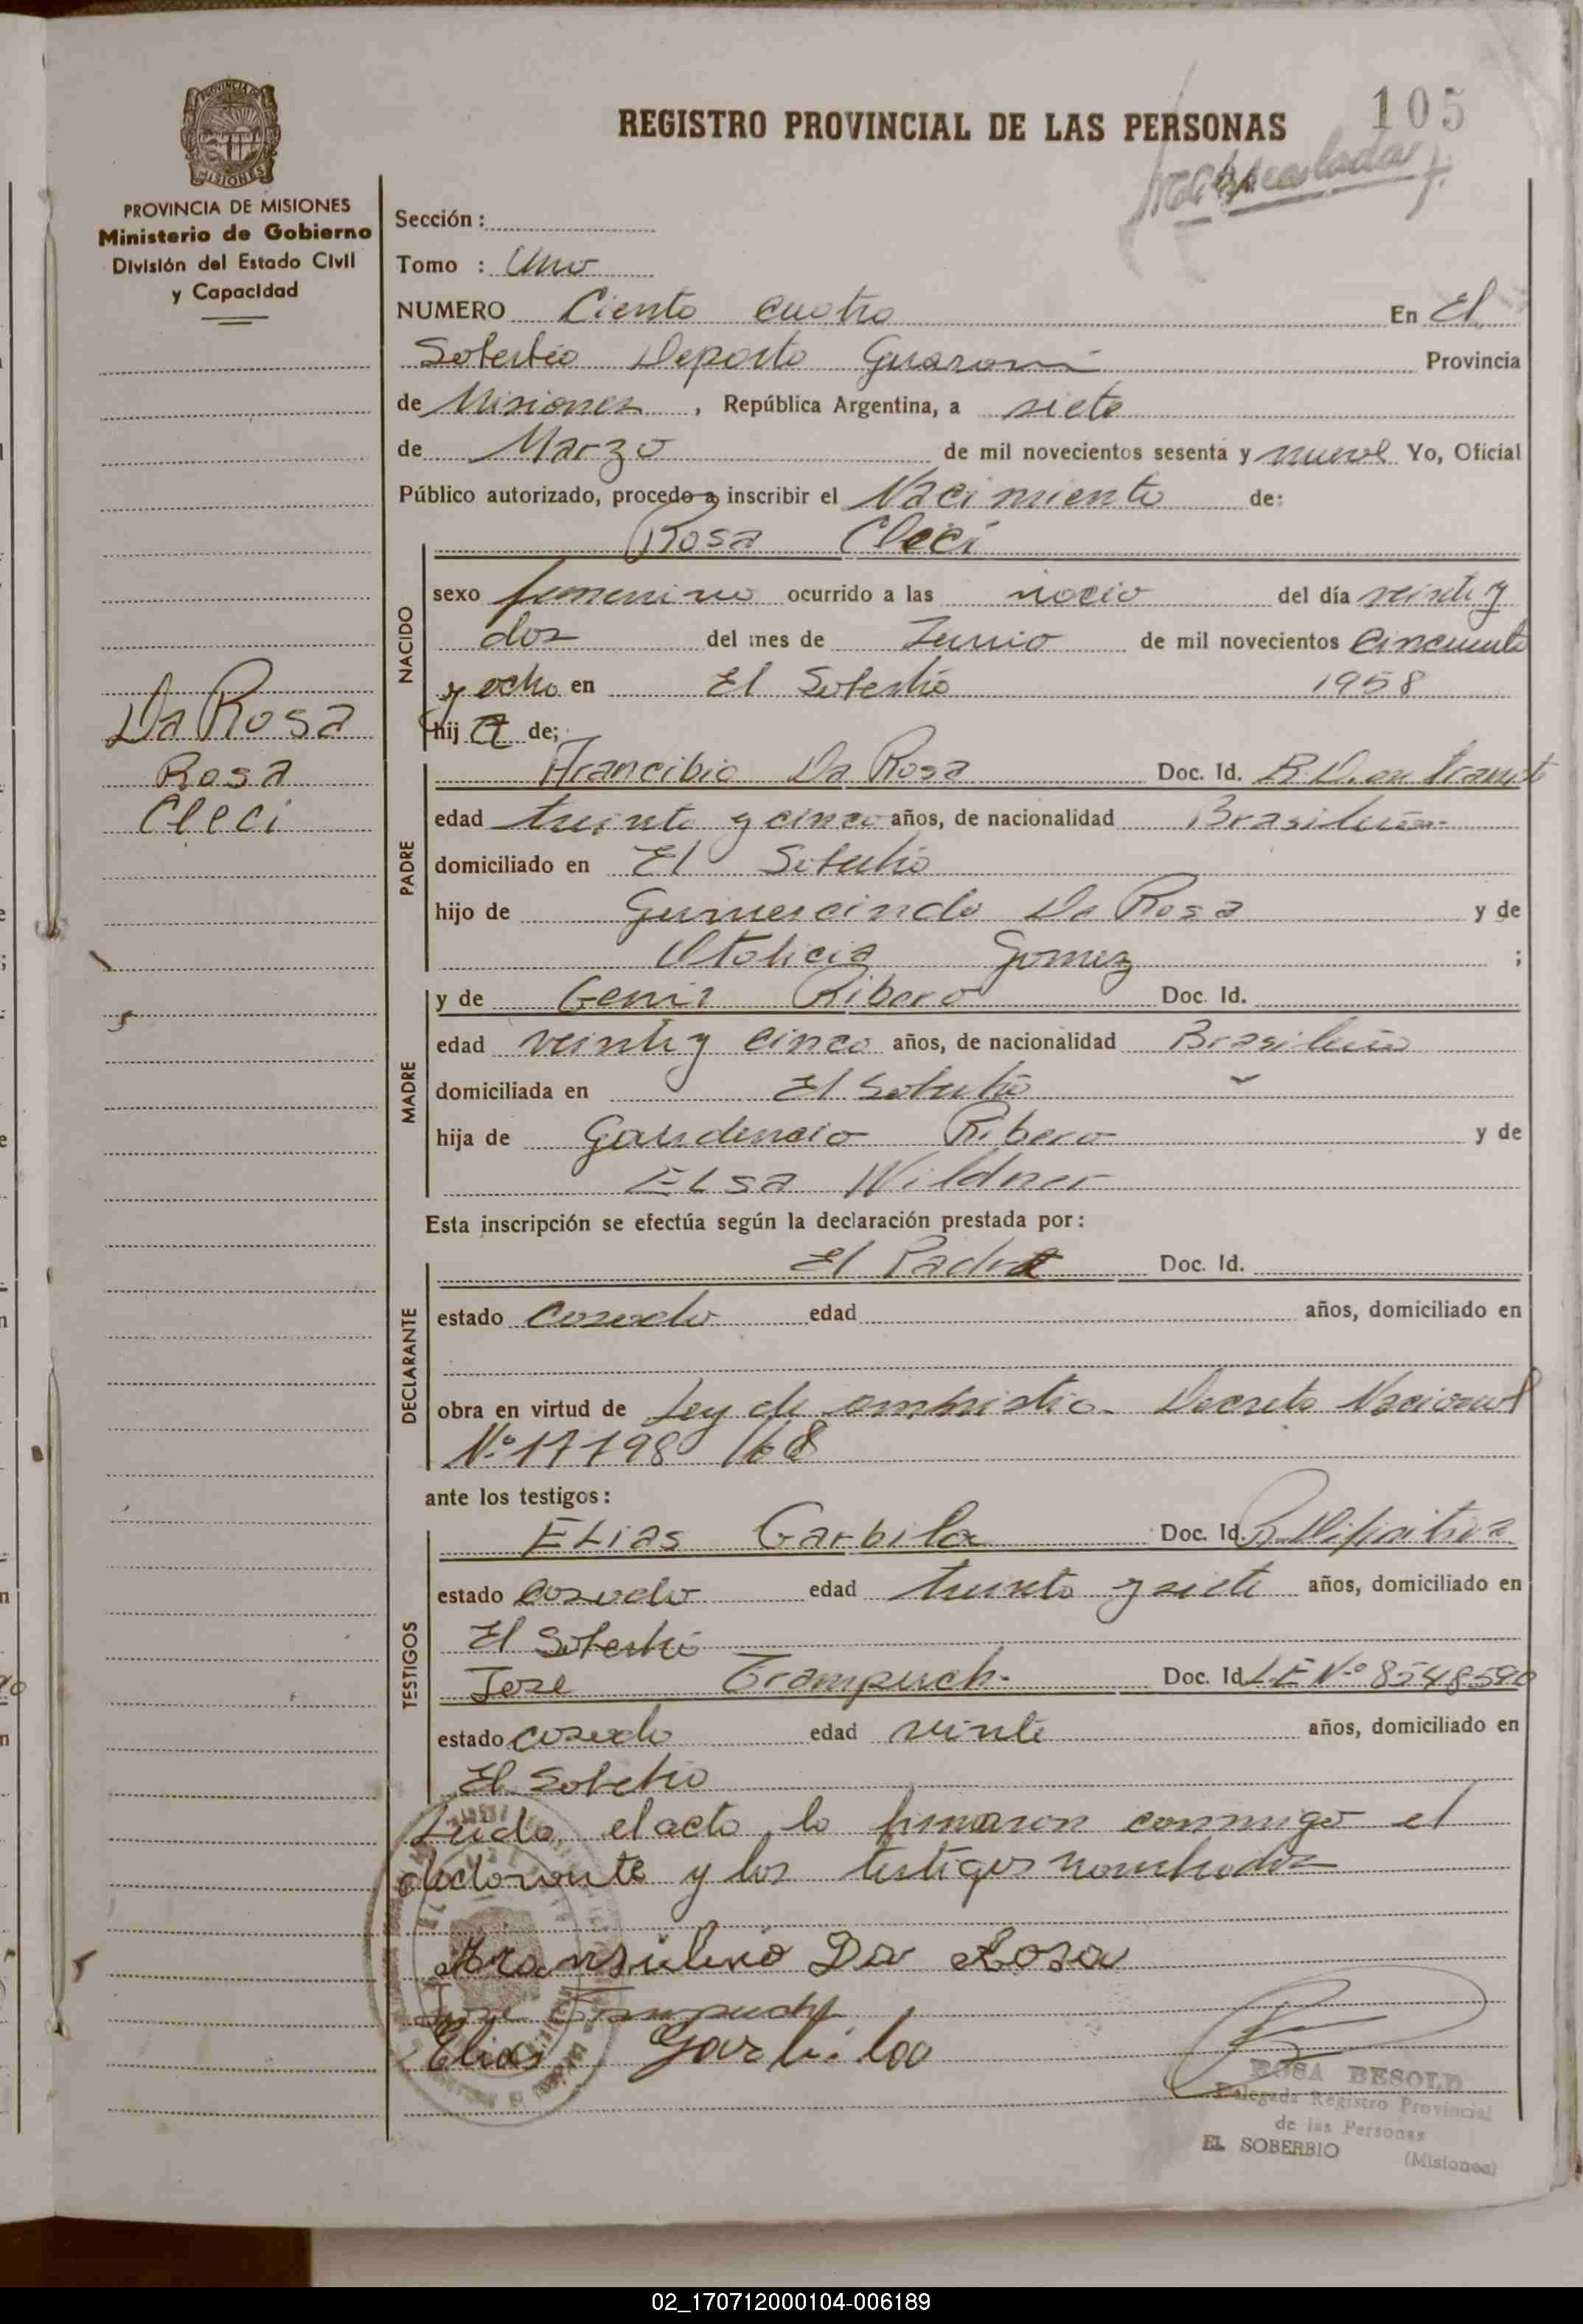 105
REGISTRO PROVINCIAL DE LAS PERSONAS
PROVINCIA DE MISIONES
Ministerio de Gobierno
División del Estado Civil
y Capacidad
Sección :
Tomo : Uno
NUMERO Ciento cuatro En El
Soberbio Deporto Guarani Provincia
de Misiones , República Argentina, a siete
de Marzo de mil novecientos sesenta y nueve Yo, Oficial
Público autorizado, procedo a inscribir el Nacimiento de:
Rosa Cleci
NACIDO
sexo femenino ocurrido a las del día veinti y
dos del mes de Junio de mil novecientos cincuenta
y ocho en El Soberbio 1958
hij a de;
Da Rosa
Rosa
Cleci
PADRE
Francibio Da Rosa Doc. Id.
edad treinta y cinco años, de nacionalidad Brasileña
domiciliado en El Soberbio
hijo de Gumercindo Da Rosa y de
Gomez ;
MADRE
y de Genis Ribero Doc. Id.
edad veinti y cinco años, de nacionalidad Brasileña
domiciliada en El Soberbio
hija de Gaudencio Ribero y de
Elsa Wildner
Esta inscripción se efectúa según la declaración prestada por:
DECLARANTE
El Padre Doc. Id.
estado casado edad años, domiciliado en
obra en virtud de Ley de amnistia Decreto Nacional
Nº 17798 /68
ante los testigos:
TESTIGOS
Elias Garbiloa Doc. Id.
estado casado edad treinta y siete años, domiciliado en
El Soberbio
Jose Trampuch Doc. Id. L E Nº 8548590
estado casado edad veinte años, domiciliado en
El Soberbio
Leida el acta la firmaron conmigo el
declarante y los testigos nombrados
Da Rosa
Jose Trampuch
Elias Garbiloa
ROSA BESOLD
Delegada Registro Provincial
de las Personas
EL SOBERBIO (Misiones)
02_170712000104-006189